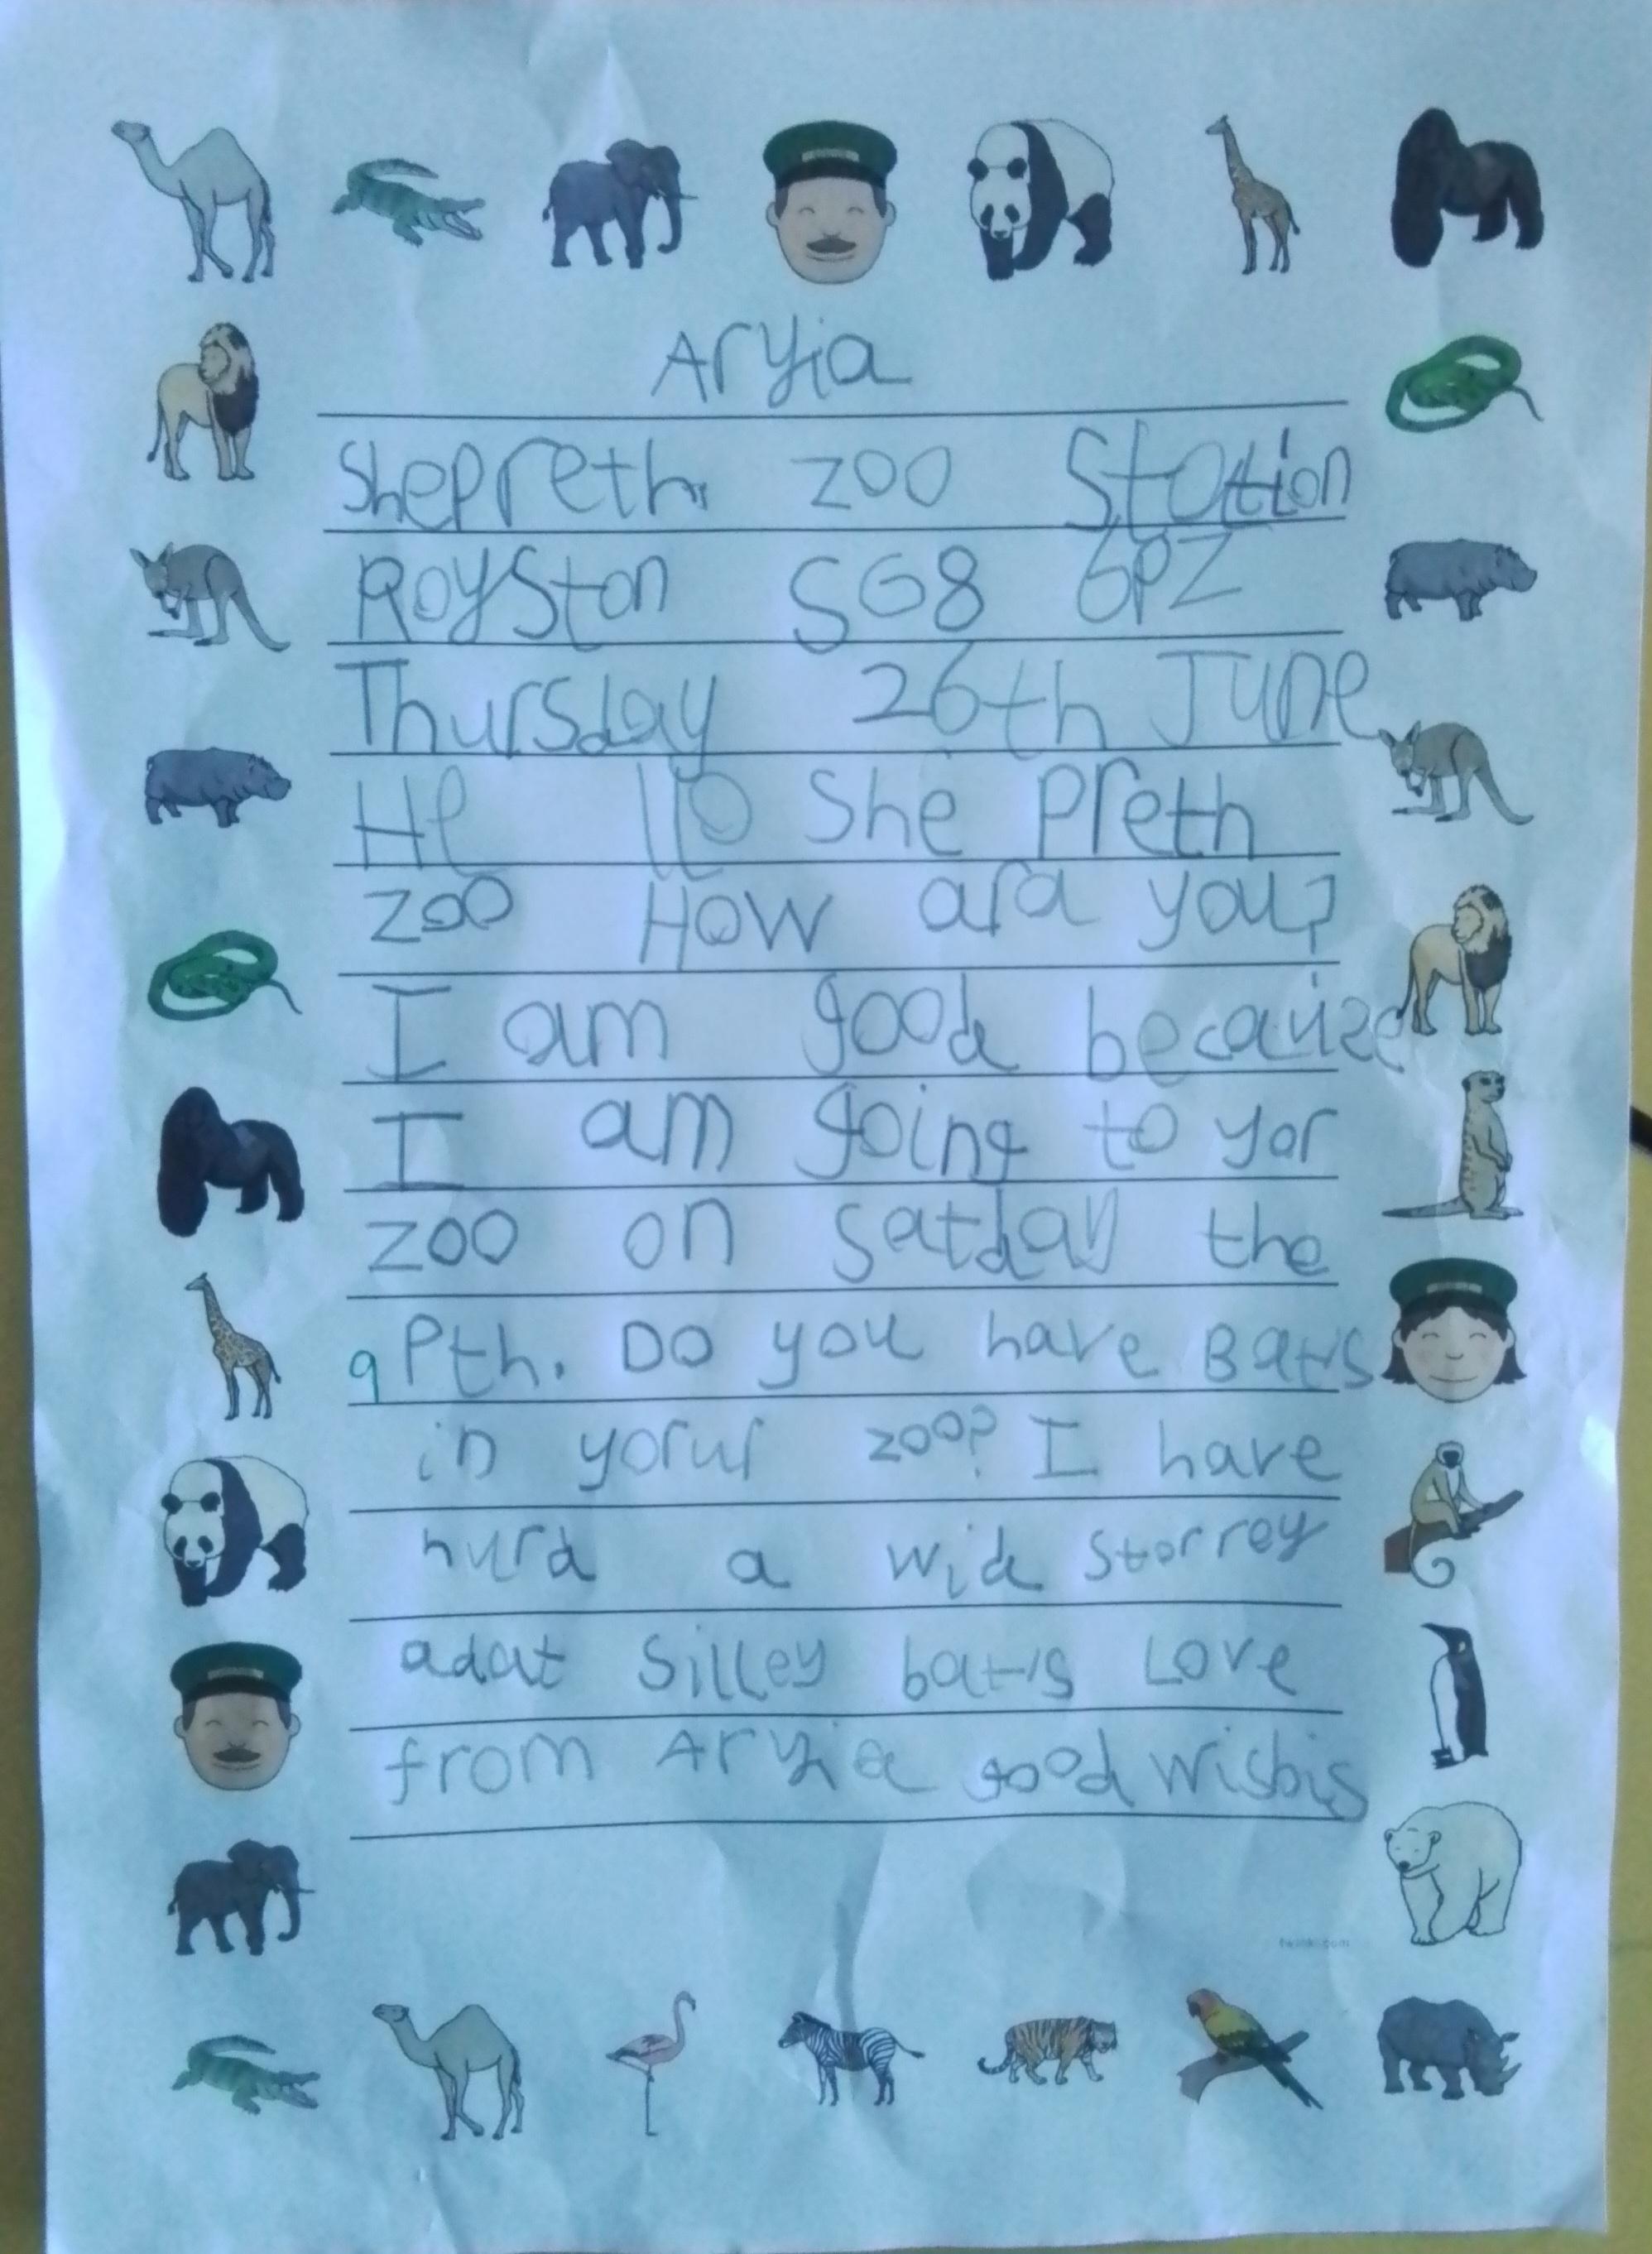 Aryia
Shepreth zoo Station
Royston SG8 6PZ
Thursday 26th June
He llo She preth
zoo How ara you?
I am good becauze
I am going to yor
zoo on satday the
9 Pth. Do you have Bats
in yorur zoo? I have
hurd a wid storrey
adat silley bats Love
from Aryia good wishis
twinkl.com